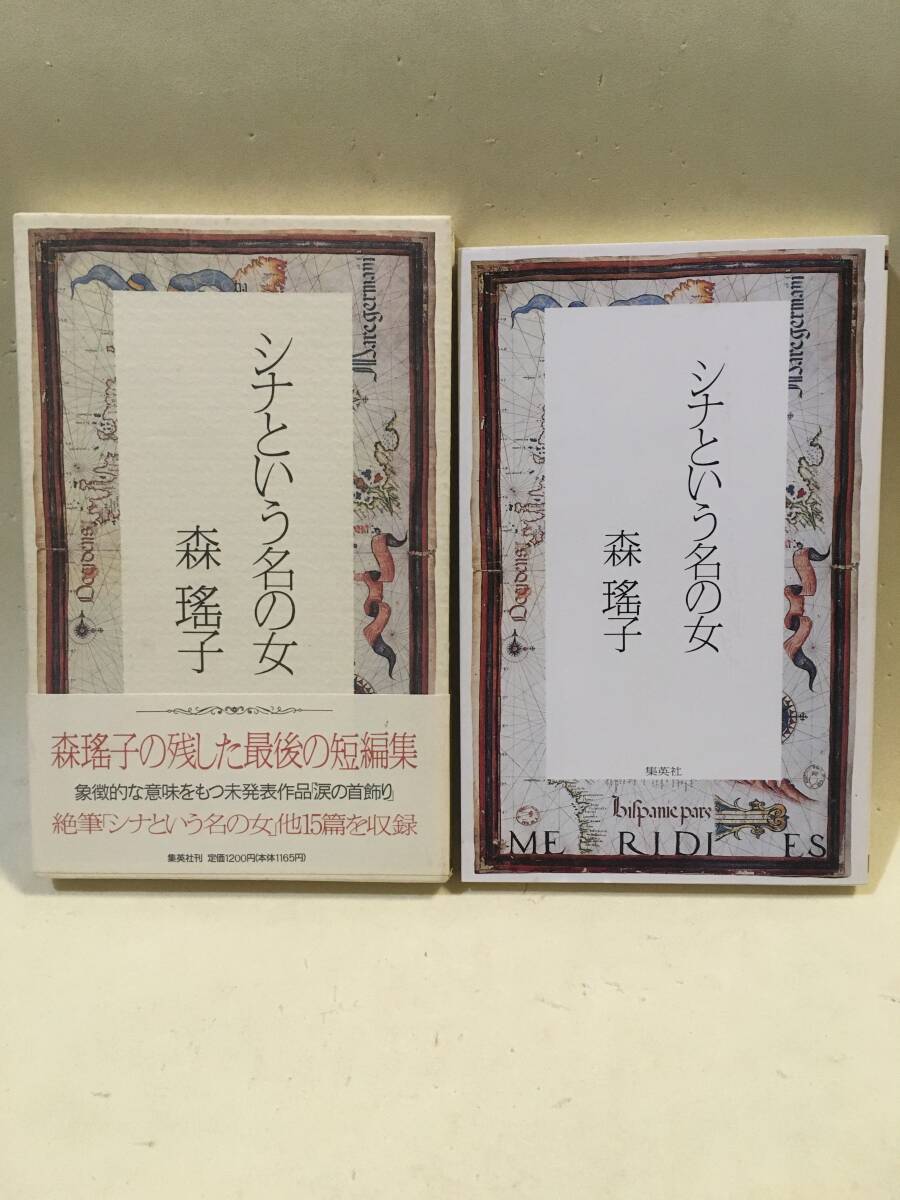 シナという名の女
森瑤子
Mare germani
森瑤子の残した最後の短編集
象徴的な意味をもつ未発表作品「涙の首飾り」
絶筆「シナという名の女」他15篇を収録
集英社刊 定価1200円(本体1165円)
シナという名の女
森瑤子
集英社
hispanie pars
MERIDIES